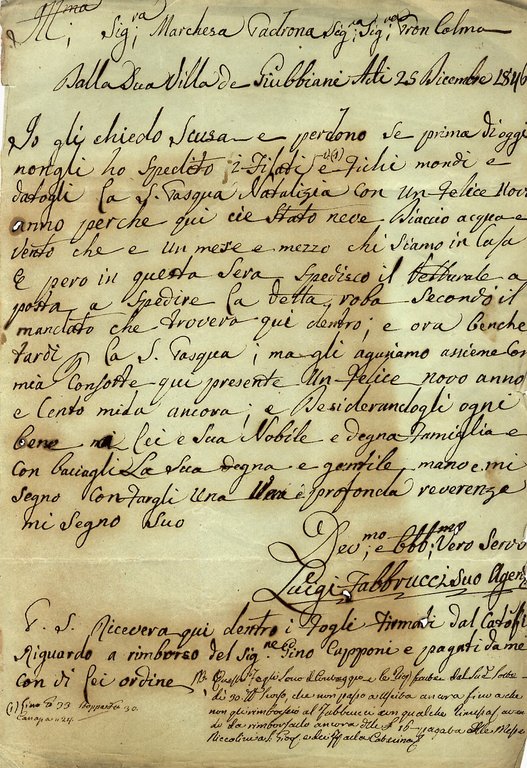 Ill.ma
Sig.ra Marchesa Padrona Sig.ra Sig.ra Pron Colma
Dalla Sua Villa de Giubbiani Adi 25 Dicembre 1846
Io gli chiedo Scusa e perdono se prima di oggi
non gli ho Spedito i Filati (1) e Fichi mondi e
datogli la S. Pasqua Natalizia con un Felice Novo
anno perche qui cie Stato neve Diaccio acqua e
vento che e un mese e mezzo chi Siamo in Casa
E pero in questa Sera Spedisco il Vetturale a
posta a Spedire la detta roba Secondo il
mandato che trovera qui dentro; e ora benche
tardi la S. Pasqua; ma gli aguriamo assieme con
mia Consorte qui presente un Felice novo anno
e Cento mila ancora; e Desiderandogli ogni
bene a Lei e Sua Nobile e degna Famiglia e
con baciagli La Sua degna e gentile mano e mi
segno con fargli una Vera e profonda reverenza
mi Segno Suo
Dev.mo e Obb.mo Vero Servo
Luigi Fabbrucci Suo Agen
P. S. Ricevera qui dentro i Fogli Firmati dal
Riguardo a rimborso del Sig.re Gino Capponi e pagati da me
con di Lei ordine
(1) Lino 33 30.
Canapa 24
Questi Fogli Sono
di 30. che non passo a ancora fino a che
non gli rimborsio al Fabbrucci in qualche
da rimborsarlo ancora delle 16 pagata